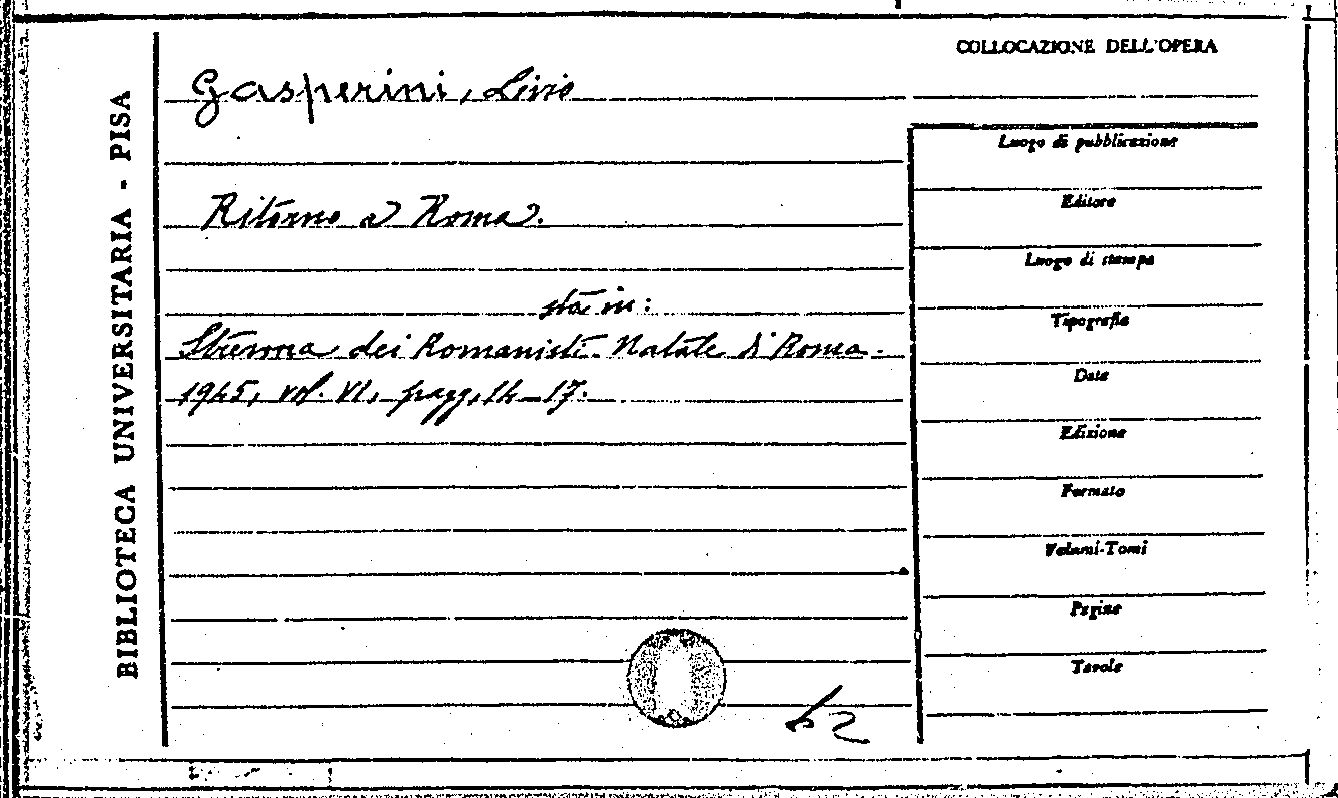 BIBLIOTECA UNIVERSITARIA - PISA
Gasperini, Livio
Ritorno a Roma.
sta in:
Strenna dei Romanisti. Natale di Roma.
1945, vol. VI, pagg, 14-17.
COLLOCAZIONE DELL'OPERA
Luogo di pubblicazione
Editore
Luogo di stampa
Tipografia
Data
Edizione
Formato
Volumi-Tomi
Pagine
Tavole